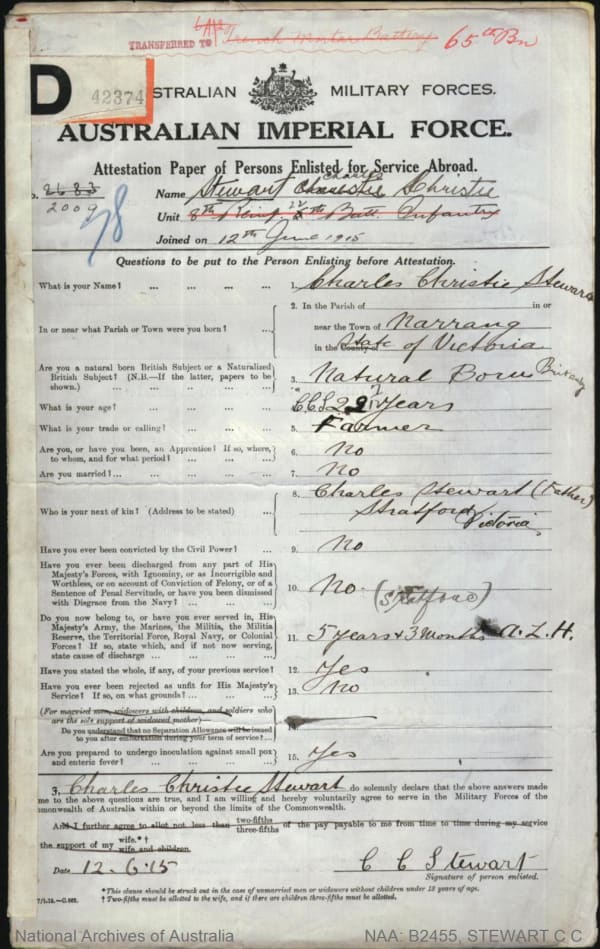 TRANSFERRED TO Trench Mortar Battery 65th Bn
D 42374
AUSTRALIAN MILITARY FORCES.
AUSTRALIAN IMPERIAL FORCE.
Attestation Paper of Persons Enlisted for Service Abroad.
No. 2683 Name Stewart Charles Christie
2009
78
Unit 8th Reinf. 22 Batt Infantry
Joined on 12th June 1915
Questions to be put to the Person Enlisting before Attestation.
What is your Name? ... ... ... ... 1. Charles Christie Stewart
2. In the Parish of in or
In or near what Parish or Town were you born? ... near the Town of Narrang
in the County of State of Victoria
Are you a natural born British Subject or a Naturalized
British Subject? (N.B.—If the latter, papers to be
shown.) ... ... ... ... 3. Natural Born
What is your age? ... ... ... ... C.C.S years
What is your trade or calling? ... ... ... 5. Farmer
Are you, or have you been, an Apprentice? If so, where,
to whom, and for what period? ... ... ... 6. No
Are you married?... ... ... ... ... 7. No
8. Charles Stewart (Father)
Who is your next of kin? (Address to be stated) ... Stratford
Victoria
Have you ever been convicted by the Civil Power? ... 9. No
Have you ever been discharged from any part of His
Majesty's Forces, with Ignominy, or as Incorrigible and
Worthless, or on account of Conviction of Felony, or of a
Sentence of Penal Servitude, or have you been dismissed
with Disgrace from the Navy? ... ... ... 10. No (Stratford)
Do you now belong to, or have you ever served in, His
Majesty's Army, the Marines, the Militia, the Militia
Reserve, the Territorial Force, Royal Navy, or Colonial
Forces? If so, state which, and if not now serving,
state cause of discharge ... ... ... 11. 5 years & 3 months A.L.H.
Have you stated the whole, if any, of your previous service? 12. Yes
Have you ever been rejected as unfit for His Majesty's
Service? If so, on what grounds? ... ... ... 13. No
(For married men, widowers with children, and soldiers who
are the sole support of widowed mother)—
Do you understand that no Separation Allowance will be issued
to you after embarkation during your term of service?... 14.
Are you prepared to undergo inoculation against small pox
and enteric fever? ... ... ... ... 15. Yes
I, Charles Christie Stewart do solemnly declare that the above answers made
me to the above questions are true, and I am willing and hereby voluntarily agree to serve in the Military Forces of the
Commonwealth of Australia within or beyond the limits of the Commonwealth.
And I further agree to allot not less than two-fifths three-fifths of the pay payable to me from time to time during my service
the support of my wife.*† wife and children.
Date 12.6.15 C C Stewart
Signature of person enlisted.
*This clause should be struck out in the case of unmarried men or widowers without children under 18 years of age.
† Two-fifths must be allotted to the wife, and if there are children three-fifths must be allotted.
National Archives of Australia NAA: B2455, STEWART C C